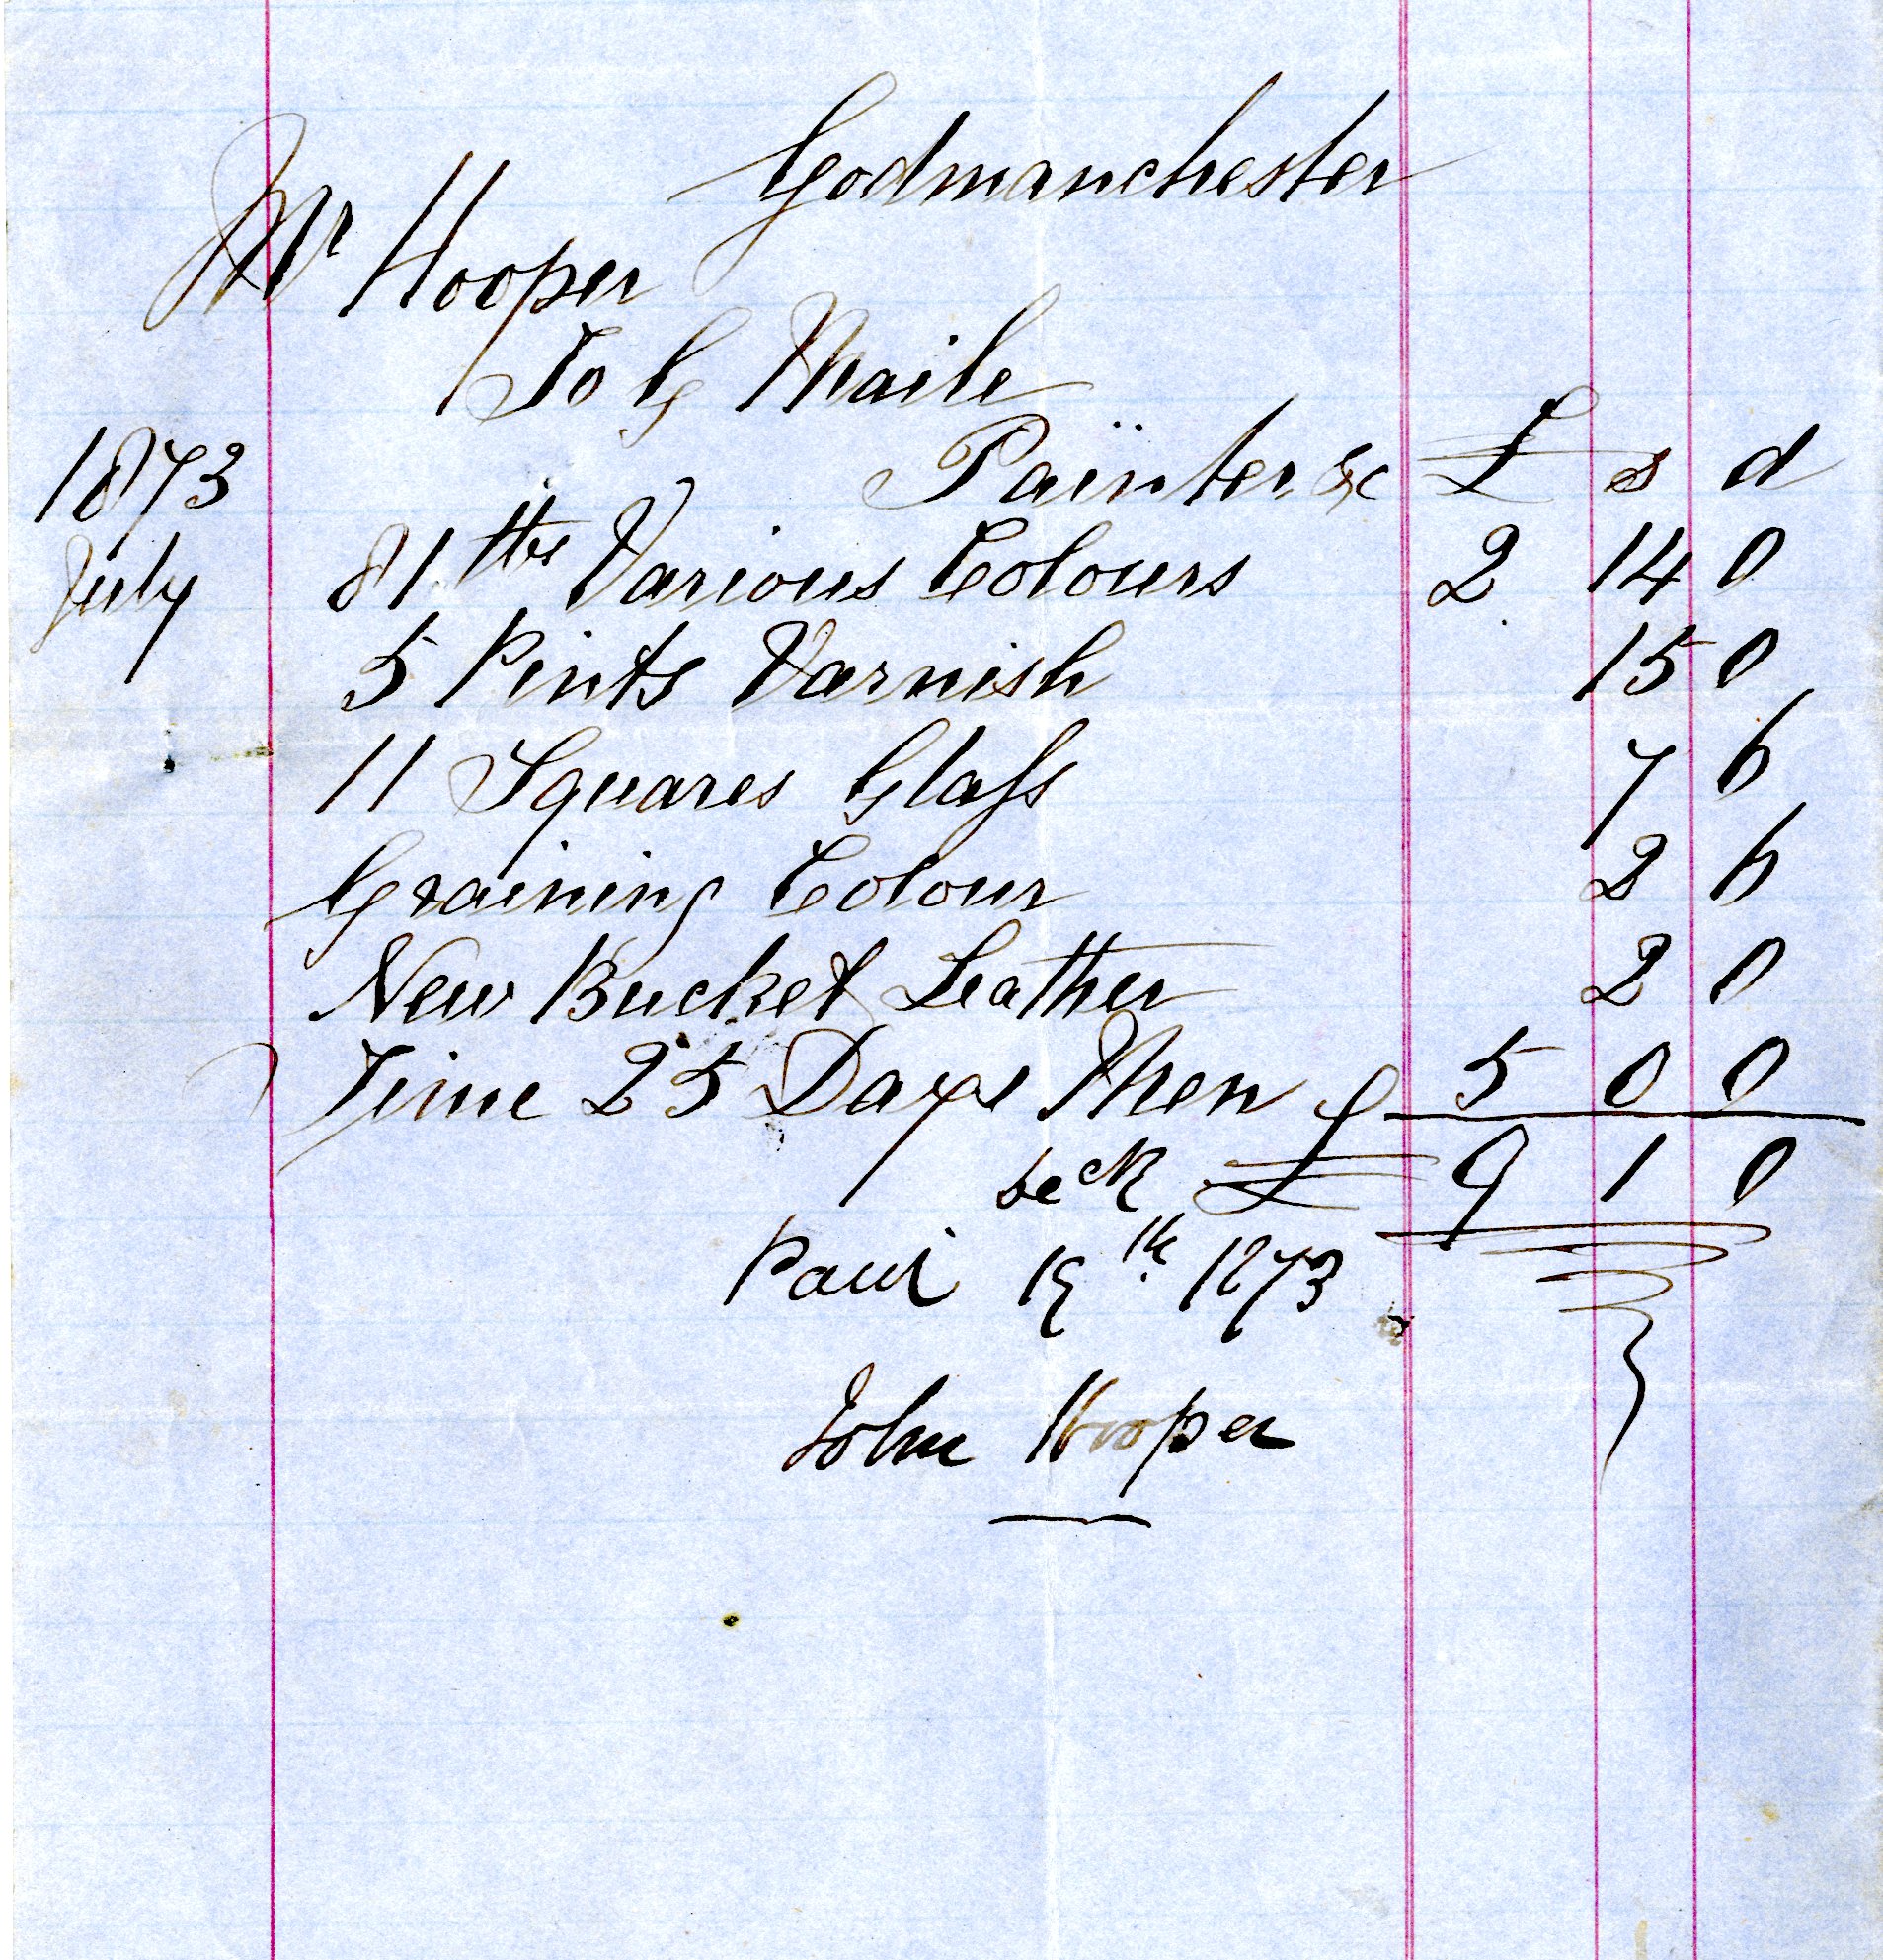 Godmanchester
Mr Hooper
To G Maile
Painter &c £ s d
1873
July 81 lbs Various Colours 2 14 0
5 Pints Varnish 15 0
11 Squares Glaſs 7 6
Graining Colour 2 6
New Bucket Leather 2 0
Time 25 Days Men 5 0 0
£ 9 1 0
Paid 19th 1873
John Hooper